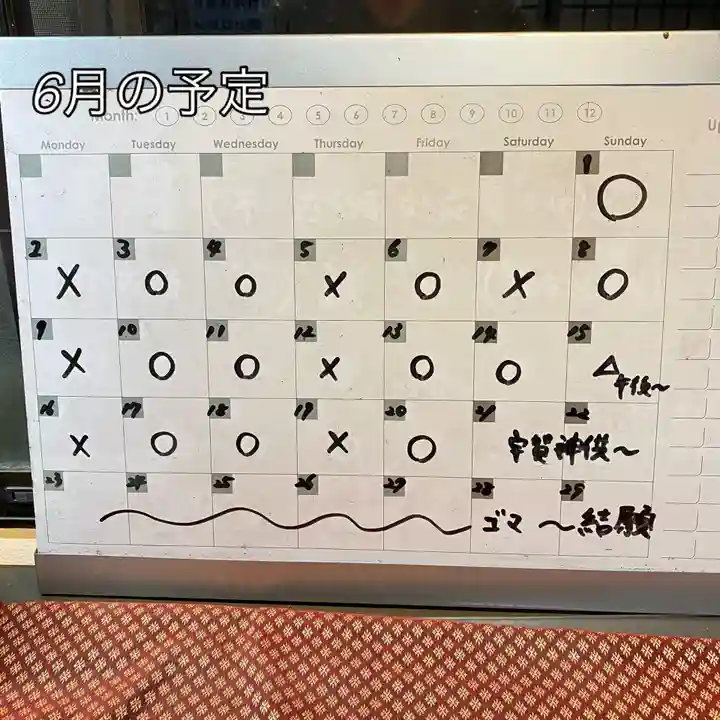 6月の予定
Month: 1 2 3 4 5 6 7 8 9 10 11 12
Monday Tuesday Wednesday Thursday Friday Saturday Sunday
1
○
2 3 4 5 6 7 8
× ○ ○ × ○ × ○
9 10 11 12 13 14 15
× ○ ○ × ○ ○ △
午後〜
16 17 18 19 20 21 22
× ○ ○ × ○ 宇賀神 〜
23 24 25 26 27 28 29
ゴマ 〜結願